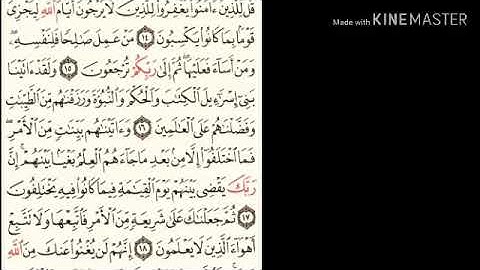 قُل لِّلَّذِينَ ءَامَنُوا۟ يَغْفِرُوا۟ لِلَّذِينَ لَا يَرْجُونَ أَيَّامَ ٱللَّهِ لِيَجْزِىَ
قَوْمًۢا بِمَا كَانُوا۟ يَكْسِبُونَ ١٤ مَنْ عَمِلَ صَٰلِحًا فَلِنَفْسِهِۦ ۖ
وَمَنْ أَسَآءَ فَعَلَيْهَا ۖ ثُمَّ إِلَىٰ رَبِّكُمْ تُرْجَعُونَ ١٥ وَلَقَدْ ءَاتَيْنَا
بَنِىٓ إِسْرَٰٓءِيلَ ٱلْكِتَٰبَ وَٱلْحُكْمَ وَٱلنُّبُوَّةَ وَرَزَقْنَٰهُم مِّنَ ٱلطَّيِّبَٰتِ
وَفَضَّلْنَٰهُمْ عَلَى ٱلْعَٰلَمِينَ ١٦ وَءَاتَيْنَٰهُم بَيِّنَٰتٍ مِّنَ ٱلْأَمْرِ ۖ
فَمَا ٱخْتَلَفُوٓا۟ إِلَّا مِنۢ بَعْدِ مَا جَآءَهُمُ ٱلْعِلْمُ بَغْيًۢا بَيْنَهُمْ ۚ إِنَّ
رَبَّكَ يَقْضِى بَيْنَهُمْ يَوْمَ ٱلْقِيَٰمَةِ فِيمَا كَانُوا۟ فِيهِ يَخْتَلِفُونَ
١٧ ثُمَّ جَعَلْنَٰكَ عَلَىٰ شَرِيعَةٍ مِّنَ ٱلْأَمْرِ فَٱتَّبِعْهَا وَلَا تَتَّبِعْ
أَهْوَآءَ ٱلَّذِينَ لَا يَعْلَمُونَ ١٨ إِنَّهُمْ لَن يُغْنُوا۟ عَنكَ مِنَ ٱللَّهِ
Made with KINEMASTER